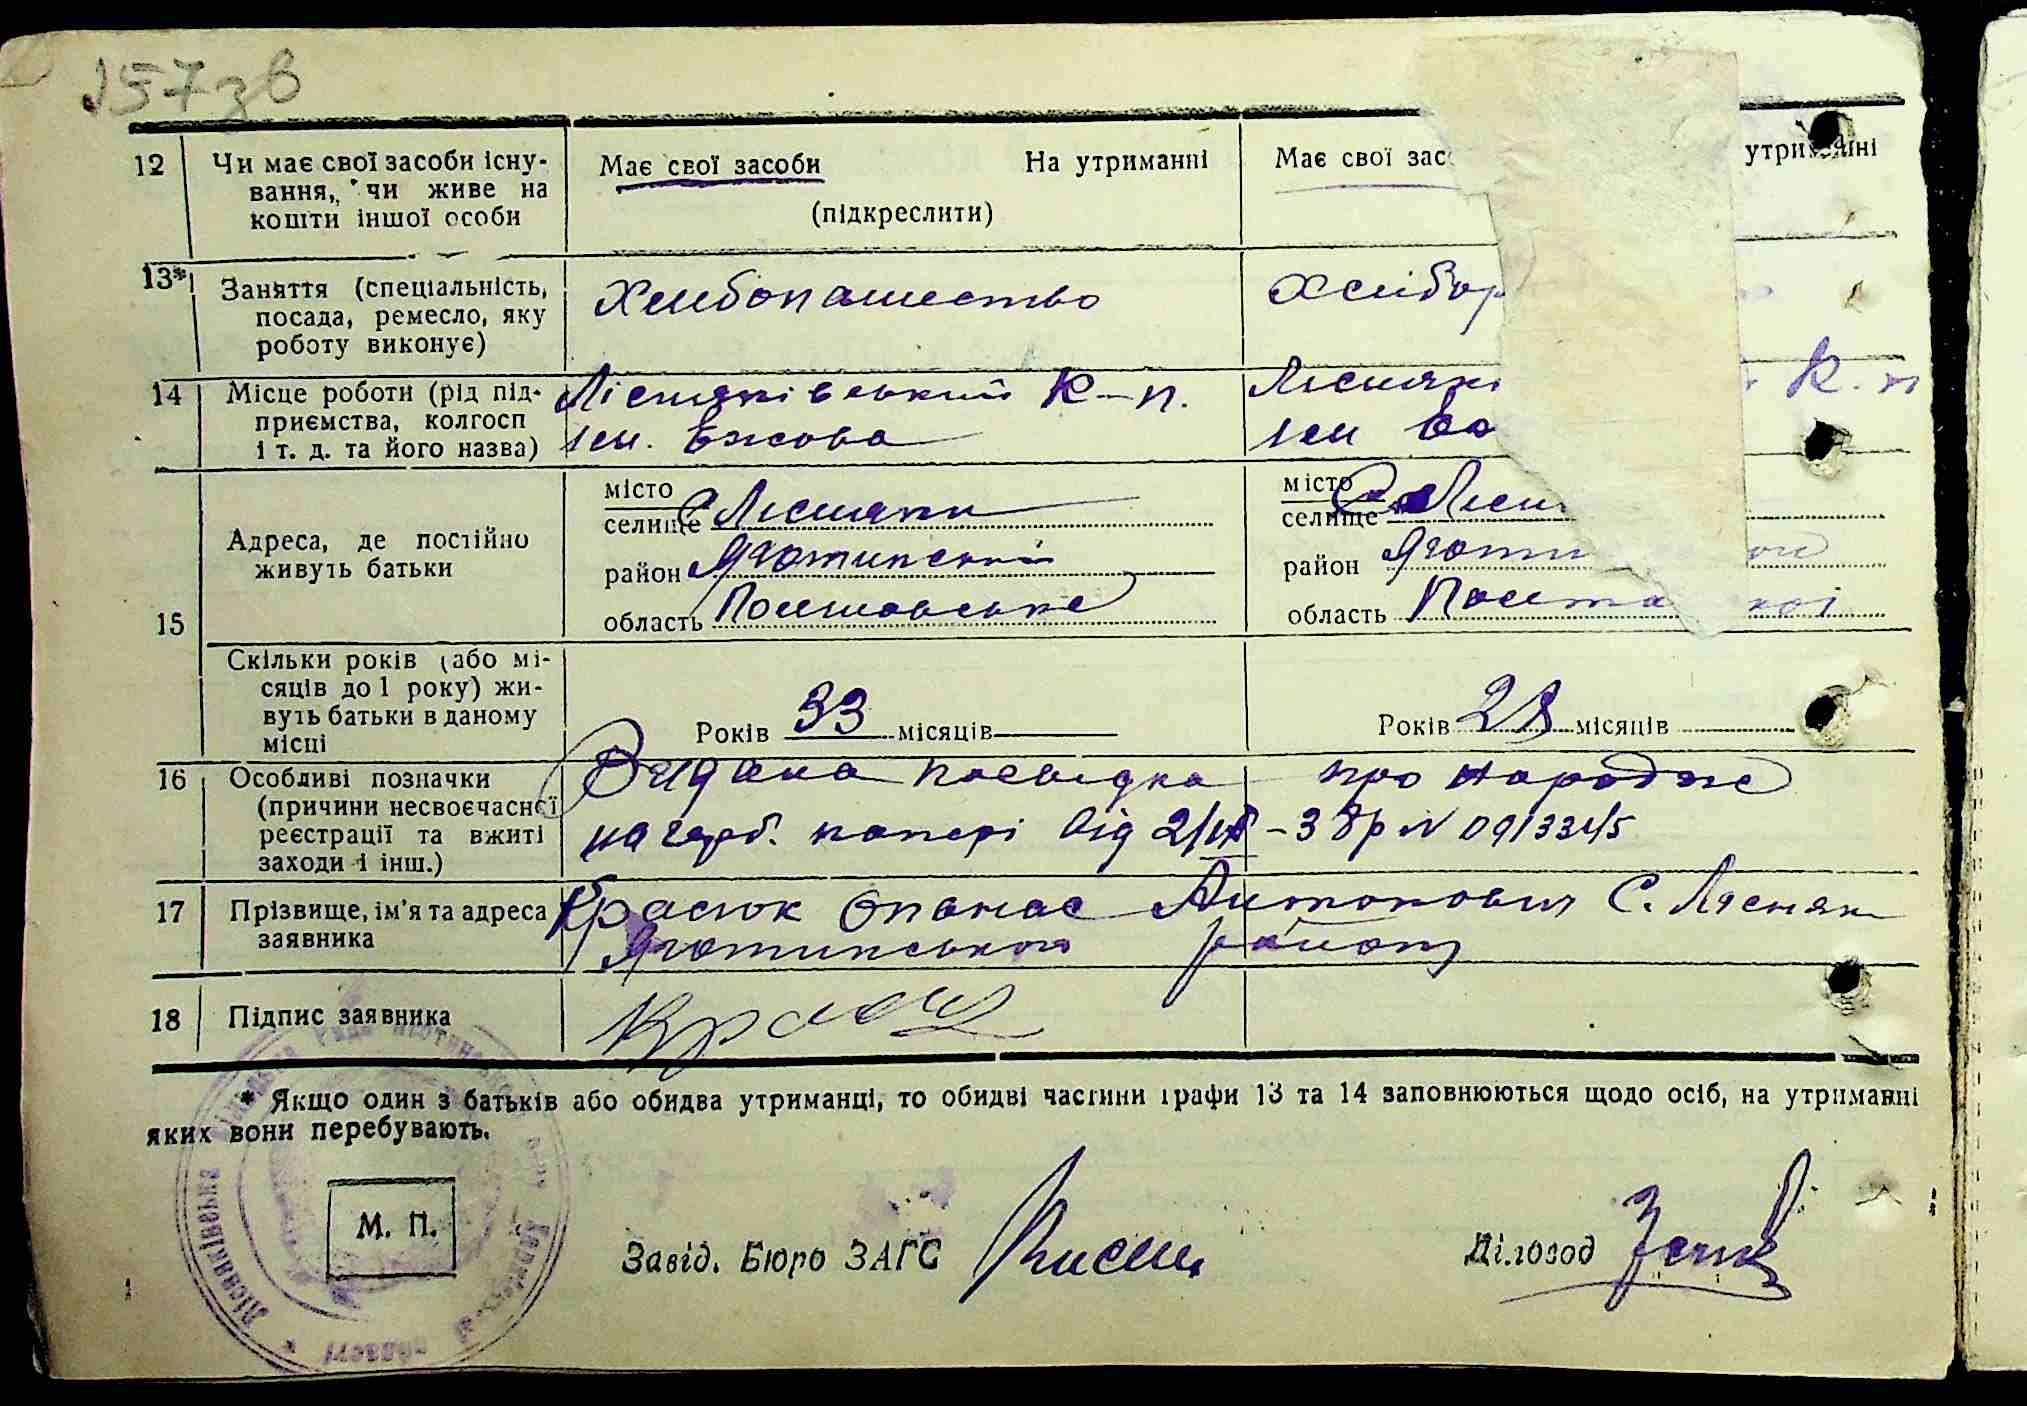 157зв
12 Чи має свої засоби існу-
вання, чи живе на
кошти іншої особи
Має свої засоби На утриманні
(підкреслити)
Має свої зас утриманні
13* Заняття (спеціальність,
посада, ремесло, яку
роботу виконує)
Хлибопашество
Хлибор
14 Місце роботи (рід під-
приємства, колгосп
і т. д. та його назва)
Лісняківський К-п.
ім. Єжова
Ліснякі К-п
ім
15
Адреса, де постійно
живуть батьки
місто
селище С Лісняки
район Яготинський
область Полтавське
місто
селище С Лісн
район Яготи
область Полта кої
Скільки років (або мі-
сяців до 1 року) жи-
вуть батьки в даному
місці
Років 33 місяців
Років 28 місяців
16 Особливі позначки
(причини несвоєчасної
реєстрації та вжиті
заходи і інш.)
Видана посвідка про народже
на герб. папері від 2/ -38р N
17 Прізвище, ім'я та адреса
заявника
Красюк Опанас Антонович С. Лісняки
Яготинського району
18 Підпис заявника
* Якщо один з батьків або обидва утриманці, то обидві частини графи 13 та 14 заповнюються щодо осіб, на утриманні
яких вони перебувають.
М. П.
Завід. Бюро ЗАГС
Діловод
Лісняківська Рада Яготинського області